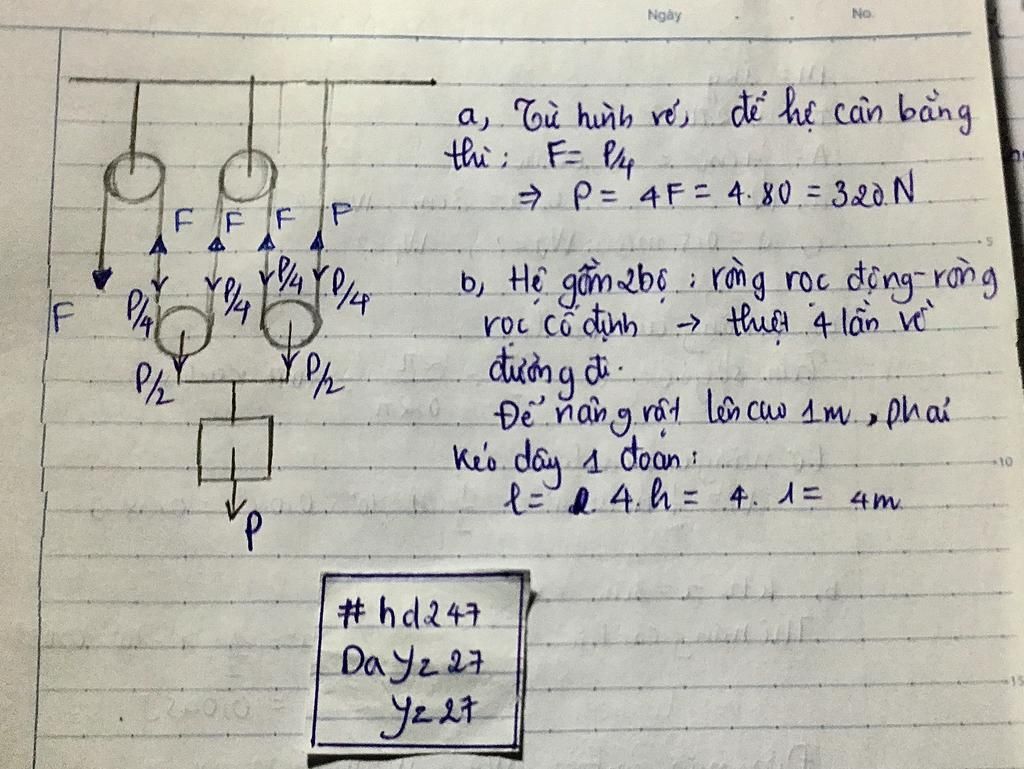 Ngày No.
a, Từ hình vẽ, để hệ cân bằng
thì: F = P/4
⇒ P = 4F = 4.80 = 320 N
F F F F
P/4 P/4 P/4 P/4
F
P/2 P/2
P
b, Hệ gồm 2 bộ: ròng rọc động-ròng
rọc cố định → thiệt 4 lần về
đường đi.
Để nâng vật lên cao 1m, phải
kéo dây 1 đoạn:
l = 4.h = 4.1 = 4m
5
10
15
#hd247
DaYz27
Yz27